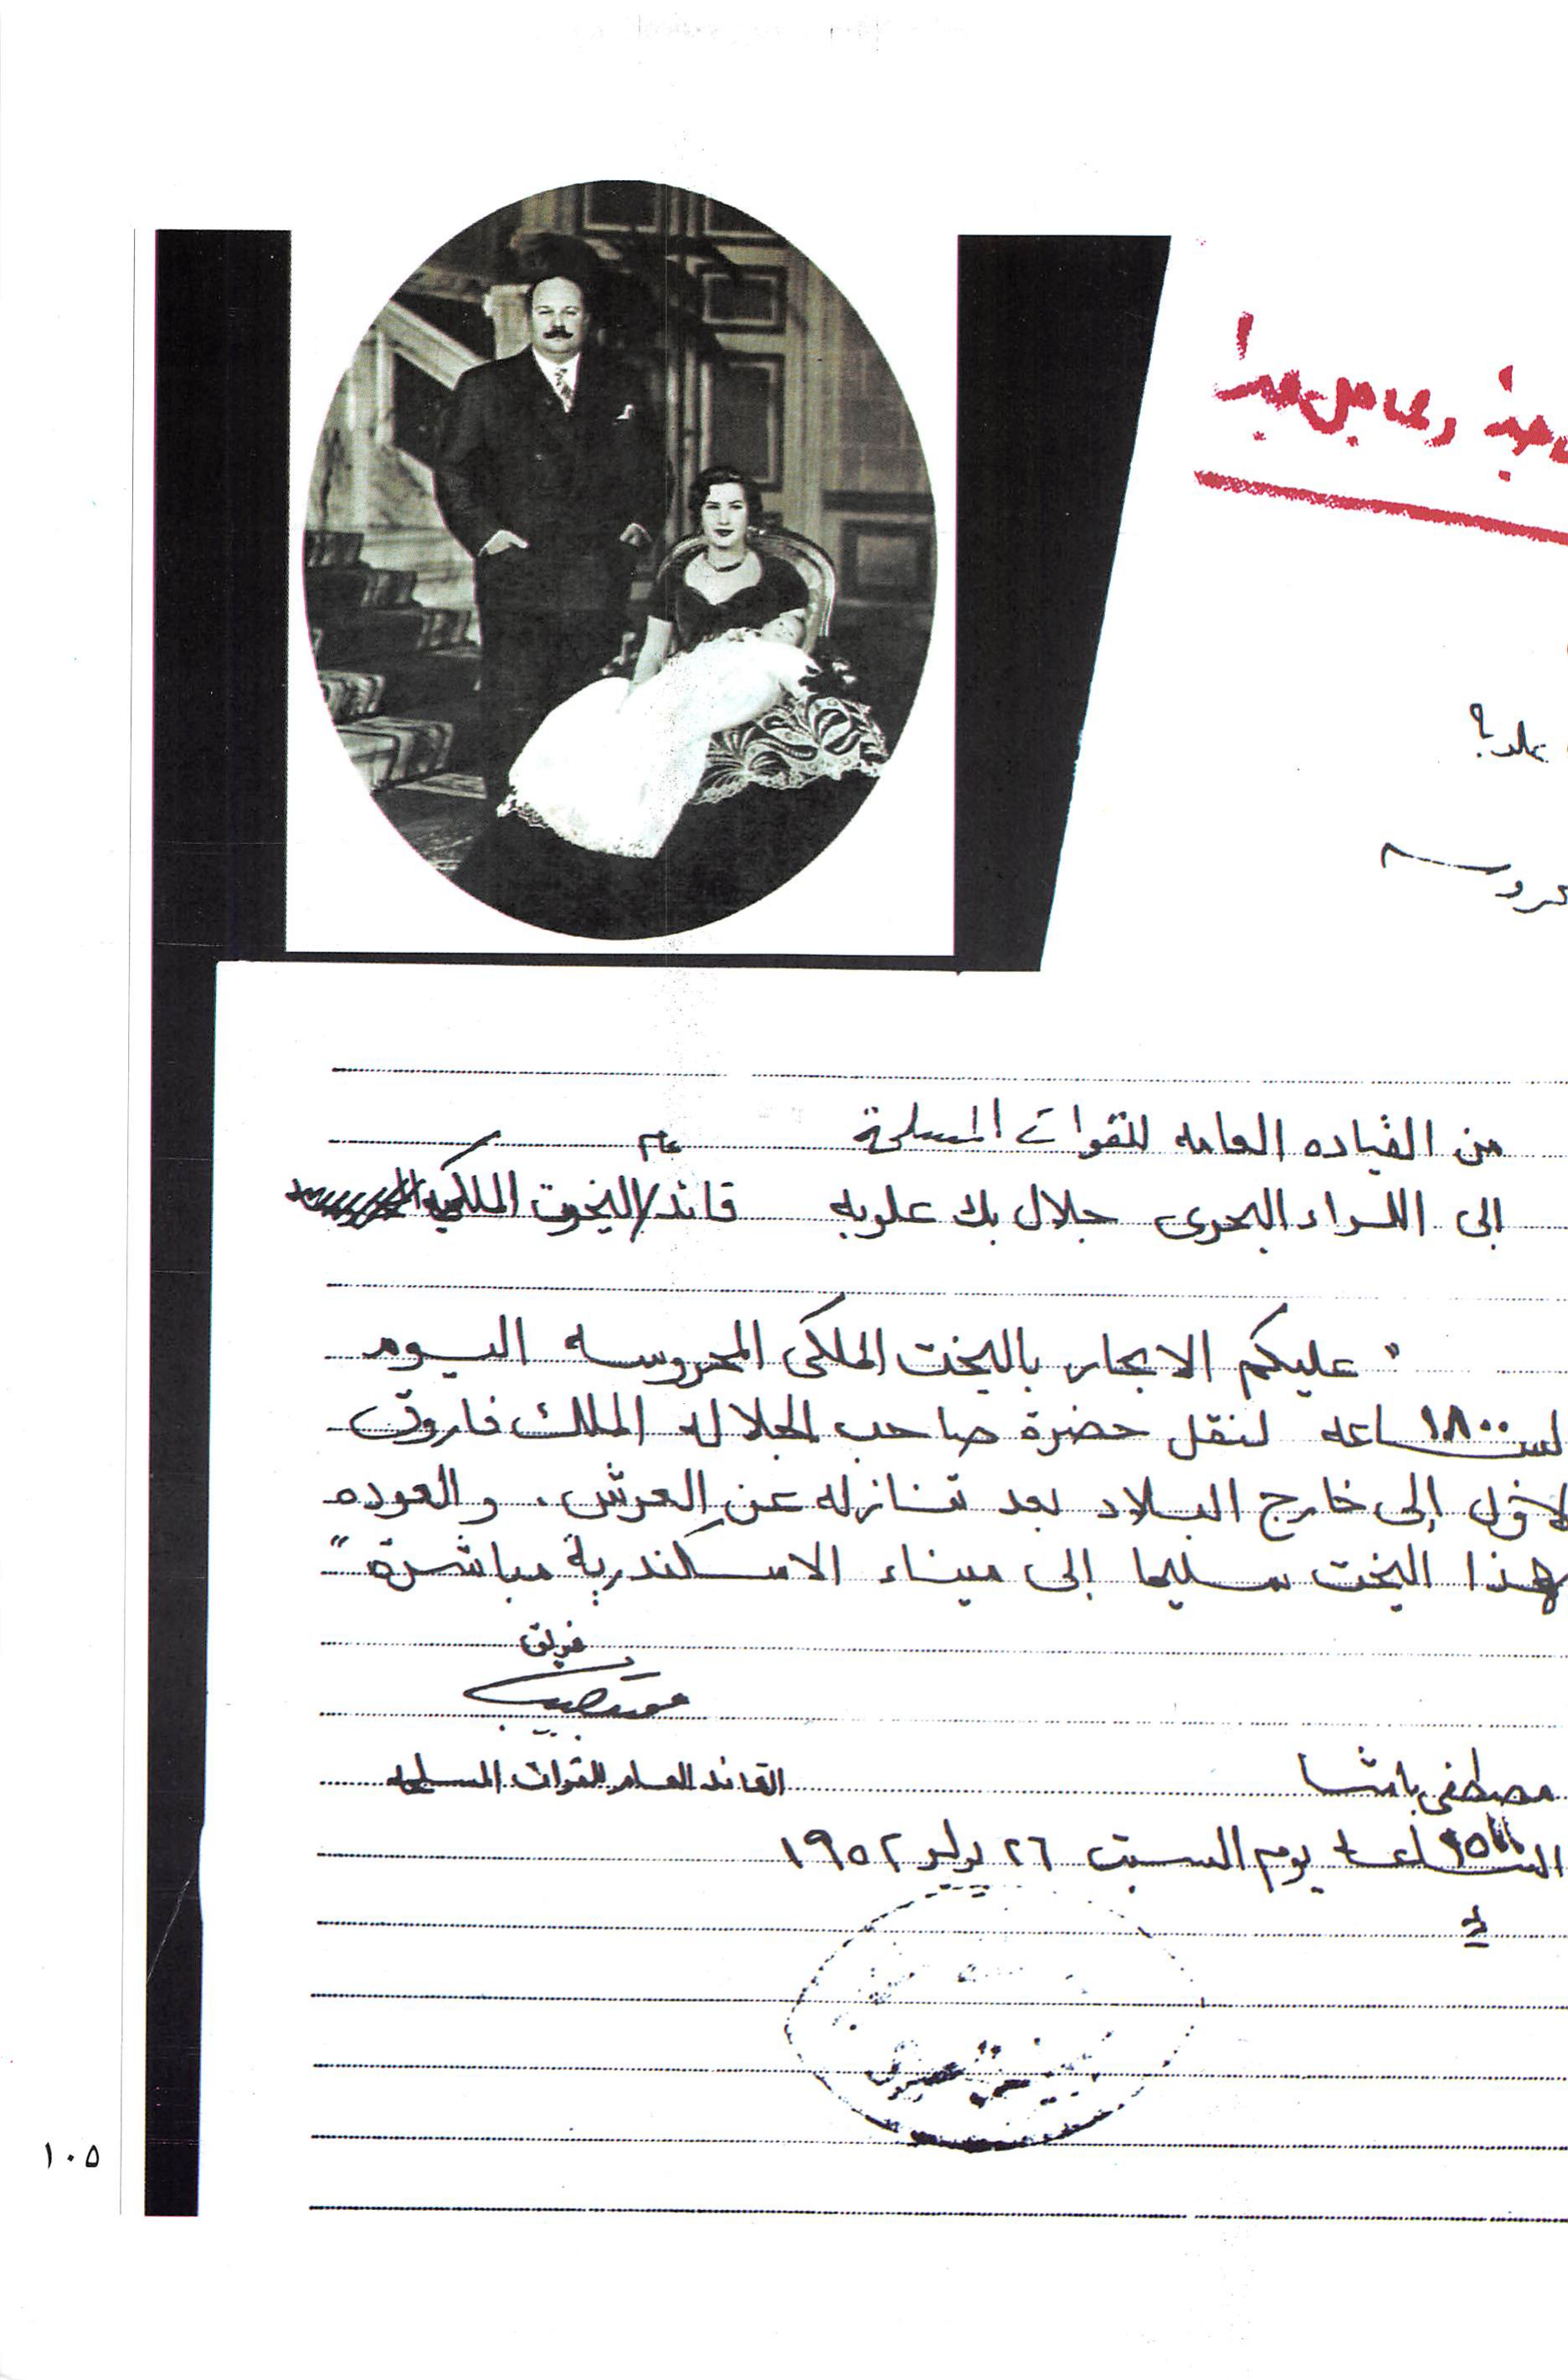 من القياده العامه للقوات المسلحة
عام
إلى اللواء البحرى جلال بك علوبه قائد اليخوت الملكيه
" عليكم الابحار باليخت الملكى المحروسه اليوم
الساعه ١٨٠٠ لنقل حضرة صاحب الجلاله الملك فاروق
الأول إلى خارج البلاد بعد تنازله عن العرش. والعوده
بهذا اليخت سليما إلى ميناء الاسكندرية مباشرة "
فريق
محمد نجيب
القائد العام للقوات المسلحه
مصطفى باشا
الساعة ١٥٠٠ يوم السبت ٢٦ يوليو ١٩٥٢
١٠٥